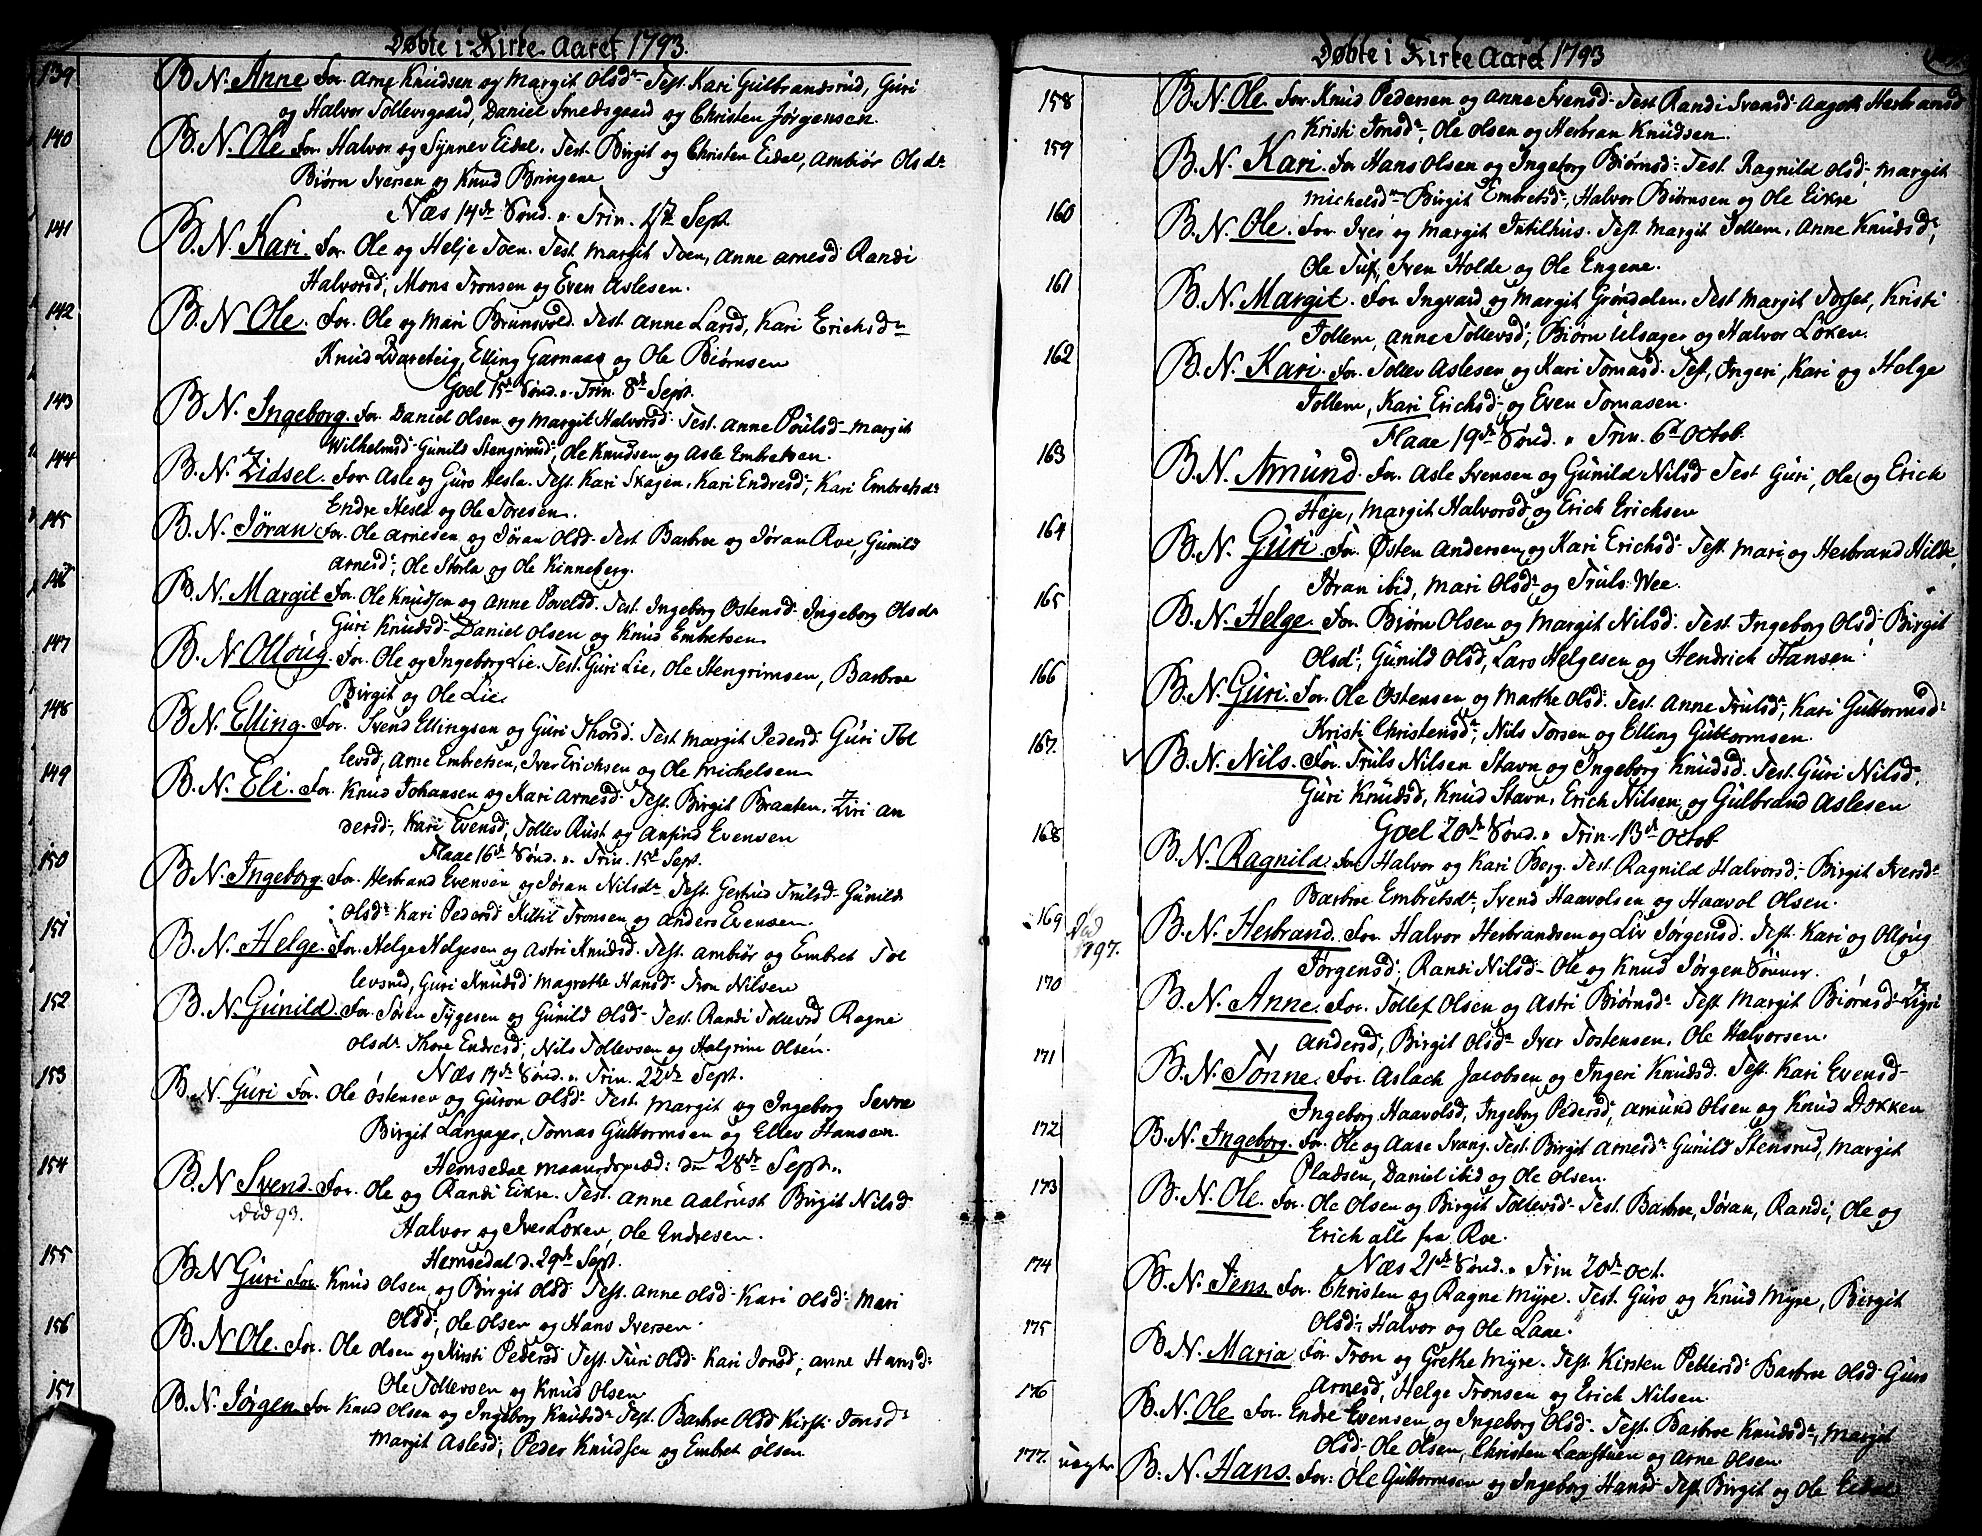 Døbte i Kirke Aaret 1793.
139 B. N. Anne For. Arne Knudsen og Margit Olsd. Test. Kari Gulbrandsrud, Guri
og Halvor Tollevsgaard, Daniel Smedsgaard og Christen Jørgensen.
140 B. N. Ole For. Halvor og Synnev Eidal. Test. Birgit og Christen Eidal, Ambiør Olsd.
Biørn Iversen og Knud Bringene
Næs 14de Sønd. p. Trin. 1te Sept.
141 B. N. Kari. For. Ole og Helje Toen. Test. Margit Toen, Anne Arnesd Randi
Halvorsd, Mons Tronsen og Even Aslesen.
142 B. N. Ole. For. Ole og Mari Brunsvold. Test. Anne Larsd, Kari Erichsd
Knud Qvarteig, Elling Garnaas og Ole Biørnsen
Goel 15de Sønd. p. Trin. 8de Sept.
143 B. N. Ingeborg. For. Daniel Olsen og Margit Halvorsd. Test. Anne Poulsd Margit
Wilhelmsd. Gunild Stengrimsd, Ole Knudsen og Asle Embretsen.
144 B. N. Zidsel. For. Asle og Guro Hesla. Test. Kari Skagen, Kari Endresd, Kari Embretsd
Endre Hesla og Ole Toresen.
145 B. N. Jøran For. Ole Arnesen og Jøran Olsd. Test. Barbroe og Jøran Roe, Gunild
Arnesd, Ole Storla og Ole Kinneberg.
146 B. N. Margit For. Ole Knudsen og Anne Povelsd. Test. Ingeborg Ostensd. Ingeborg Olsd
Guri Knudsd. Daniel Olsen og Knud Embretsen
147 B. N. Olloug. For. Ole og Ingeborg Lie. Test. Guri Lie, Ole Stengrimsen, Barbroe
Birgit og Ole Lie
148 B. N. Elling. For. Svend Ellingsen og Guri Thorsd. Test Margit Pedersd. Guri Tol
levsd, Arne Embretsen, Iver Erichsen og Ole Michelsen
149 B. N. Eli. For. Knud Johansen og Kari Arnesd Test. Birgit Braaten. Ziri An
dersd, Kari Evensd, Tollev Rust og Anfind Evensen
Flaae 16de Sønd. p. Trin. 15de Sept.
150 B. N. Ingeborg For. Herbrand Evensen og Jøran Nilsd. Test. Gertrud Trulsd Gunild
Olsd. Kari Pedersd Kittil Tronsen og Anders Evensen
151 B. N. Helge. For. Helge Helgesen og Astri Knudsd. Test. Ambiør og Embret Tol
levsrud, Guri Knudsd Magrethe Hansd. Tron Nilsen
152 B. N. Gunild For. Søren Tygesen og Gunild Olsd. Test. Randi Tollevsd Ragne
Olsd. Thore Endresd, Nils Tollevsen og Halgrim Olsen.
Næs 17de Sønd. p. Trin. 22de Sept.
153 B. N. Guri For. Ole Østensen og Guron Olsd. Test. Margit og Ingeborg Sevre
Birgit Langager, Tomas Guttormsen og Ellev Hansen.
Hemsedae Maanedspræd: den 28de Sept.
154 B. N. Svend. For. Ole og Randi Eikre. Test. Anne Aalrust Birgit Nilsd
død 93.
Halvor og Iver Løken, Ole Endresen.
Hemsedal d. 29de Sept.
155 B. N. Guri For. Knud Olsen og Birgit Olsd Test. Anne Olsd. Kari Olsd. Mari
Olsd, Ole Olsen og Hans Iversen.
156 B. N. Ole. For. Ole Olsen og Kirsti Pedersd Test. Turi Olsd. Kari Jonsd, Anne Hansd
Ole Tollevsen og Knud Olsen
157 B. N. Jørgen For Knud Olsen og Ingeborg Knudsd. Test. Barbroe Olsd Kirsti Jonsd
Margit Aslesd, Peder Knudsen og Embret Olsen
Døbte i Kirke Aaret 1793
158 B. N. Ole. For Knud Pedersen og Anne Svensd. Test Randi Svensd. Aagoth Herbransd
Kristi Jonsd, Ole Olsen og Herbran Knudsen.
159 B. N. Kari. For Hans Olsen og Ingeborg Biørnsd. Test. Ragnild Olsd, Margit
Michelsd Birgit Embretsd, Halvor Biørnsen og Ole Eikre
160 B. N. Ole. For. Iver og Margit Intilhus. Test. Margit Tollem, Anne Knudsd,
Ole Tuf, Sven Holde og Ole Engene.
161 B. N. Margit. For. Ingvard og Margit Grøndalen. Test Margit Torset, Kristi
Tollem, Anne Tollevsd, Biørn Ulsager og Halvor Løken.
162 B. N. Kari. For. Tollev Aslesen og Kari Tomasd. Test, Ingeri, Kari og Helge
Tollem, Kari Erichsd og Even Tomasen.
Flaae 19de Sønd. p. Trin. 6te Octob.
163 B. N. Amund. For. Asle Svensen og Gunild Nilsd Test Guri, Ole og Erich
Heje, Margit Halvorsd og Erich Erichsen
164 B. N. Guri For. Østen Andersen og Kari Erichsd. Test. Mari og Herbrand Hilde,
Jøran ibid, Mari Olsd og Truls Wee.
165 B. N. Helge. For. Biørn Olsen og Margit Nilsd. Test. Ingeborg Olsd. Birgit
Olsd, Gunild Olsd, Lars Helgesen og Hendrich Hansen.
166 B. N. Guri. For. Ole Ostensen og Marthe Olsd. Test. Anne Trulsd, Kari Guttormsd
Kristi Christensd, Nils Torsen og Elling Guttormsen.
167. B. N. Nils. For. Truls Nilsen Stavn og Ingeborg Knudsd. Test. Guri Nilsd,
Guri Knudsd, Knud Stavn, Erich Nilsen og Gulbrand Aslesen
Goel 20de Sønd. p. Trin. 13de Octob.
168 B. N. Ragnild. For Halvor og Kari Berg. Test. Ragnild Halvorsd. Birgit Iversd
Barbroe Embretsd, Svend Haavolsen og Haavol Olsen.
169 død 1797. B. N. Herbrand. For. Halvor Herbrandsen og Liv Jørgensd. Test. Kari og Olloug
Jørgensd, Randi Nilsd. Ole og Knud Jørgen Sønner.
170 B. N. Anne. For. Tollef Olsen og Astri Biørnsd. Test. Margit Biørnsd. Zigri
Andersd, Birgit Olsd. Iver Tostensen. Ole Halvorsen.
171 B. N. Tønne. For. Aslach Jacobsen og Ingeri Knudsd. Test. Kari Evensd
Ingeborg Haavolsd, Ingeborg Pedersd, Amund Olsen og Knud Dokken
172 B. N. Ingeborg. For. Ole og Aase Svang. Test. Birgit Arnesd. Gunild Stensrud, Margit
Pladsen, Daniel ibid og Ole Olsen.
173 B. N. Ole. For. Ole Olsen og Birgit Tollevsd. Test. Barbroe, Jøran, Randi, Ole og
Erich alle fra Roe.
Næs 21de Sønd. p. Trin 20de Oct.
174 B. N. Jens. For. Christen og Ragne Myre. Test. Guro og Knud Myre, Birgit
Olsd, Halvor og Ole Laae.
175 B. N. Maria For Tron og Grethe Myre. Test. Kirsten Pettersd. Barbroe Olsd. Guro
Arnesd, Helge Tronsen og Erich Nilsen.
176 B. N. Ole For. Endre Evensen og Ingeborg Olsd. Test. Barbroe Knudsd, Margit
Olsd. Ole Olsen, Christen Laastuen og Arne Olsen
177. uægte B. N. Hans. For: Ole Guttormsen og Ingeborg Hansd. Test. Birgit og Ole Eidal